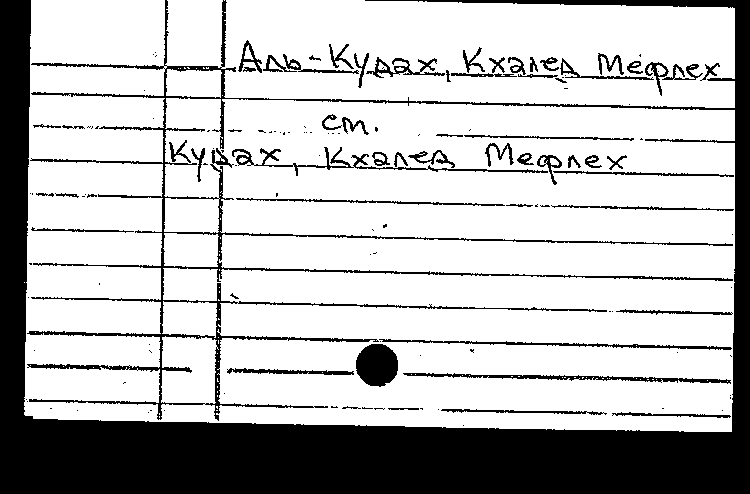 Аль-Кудах, Кхалед Мефлех
см.
Кудах, Кхалед Мефлех